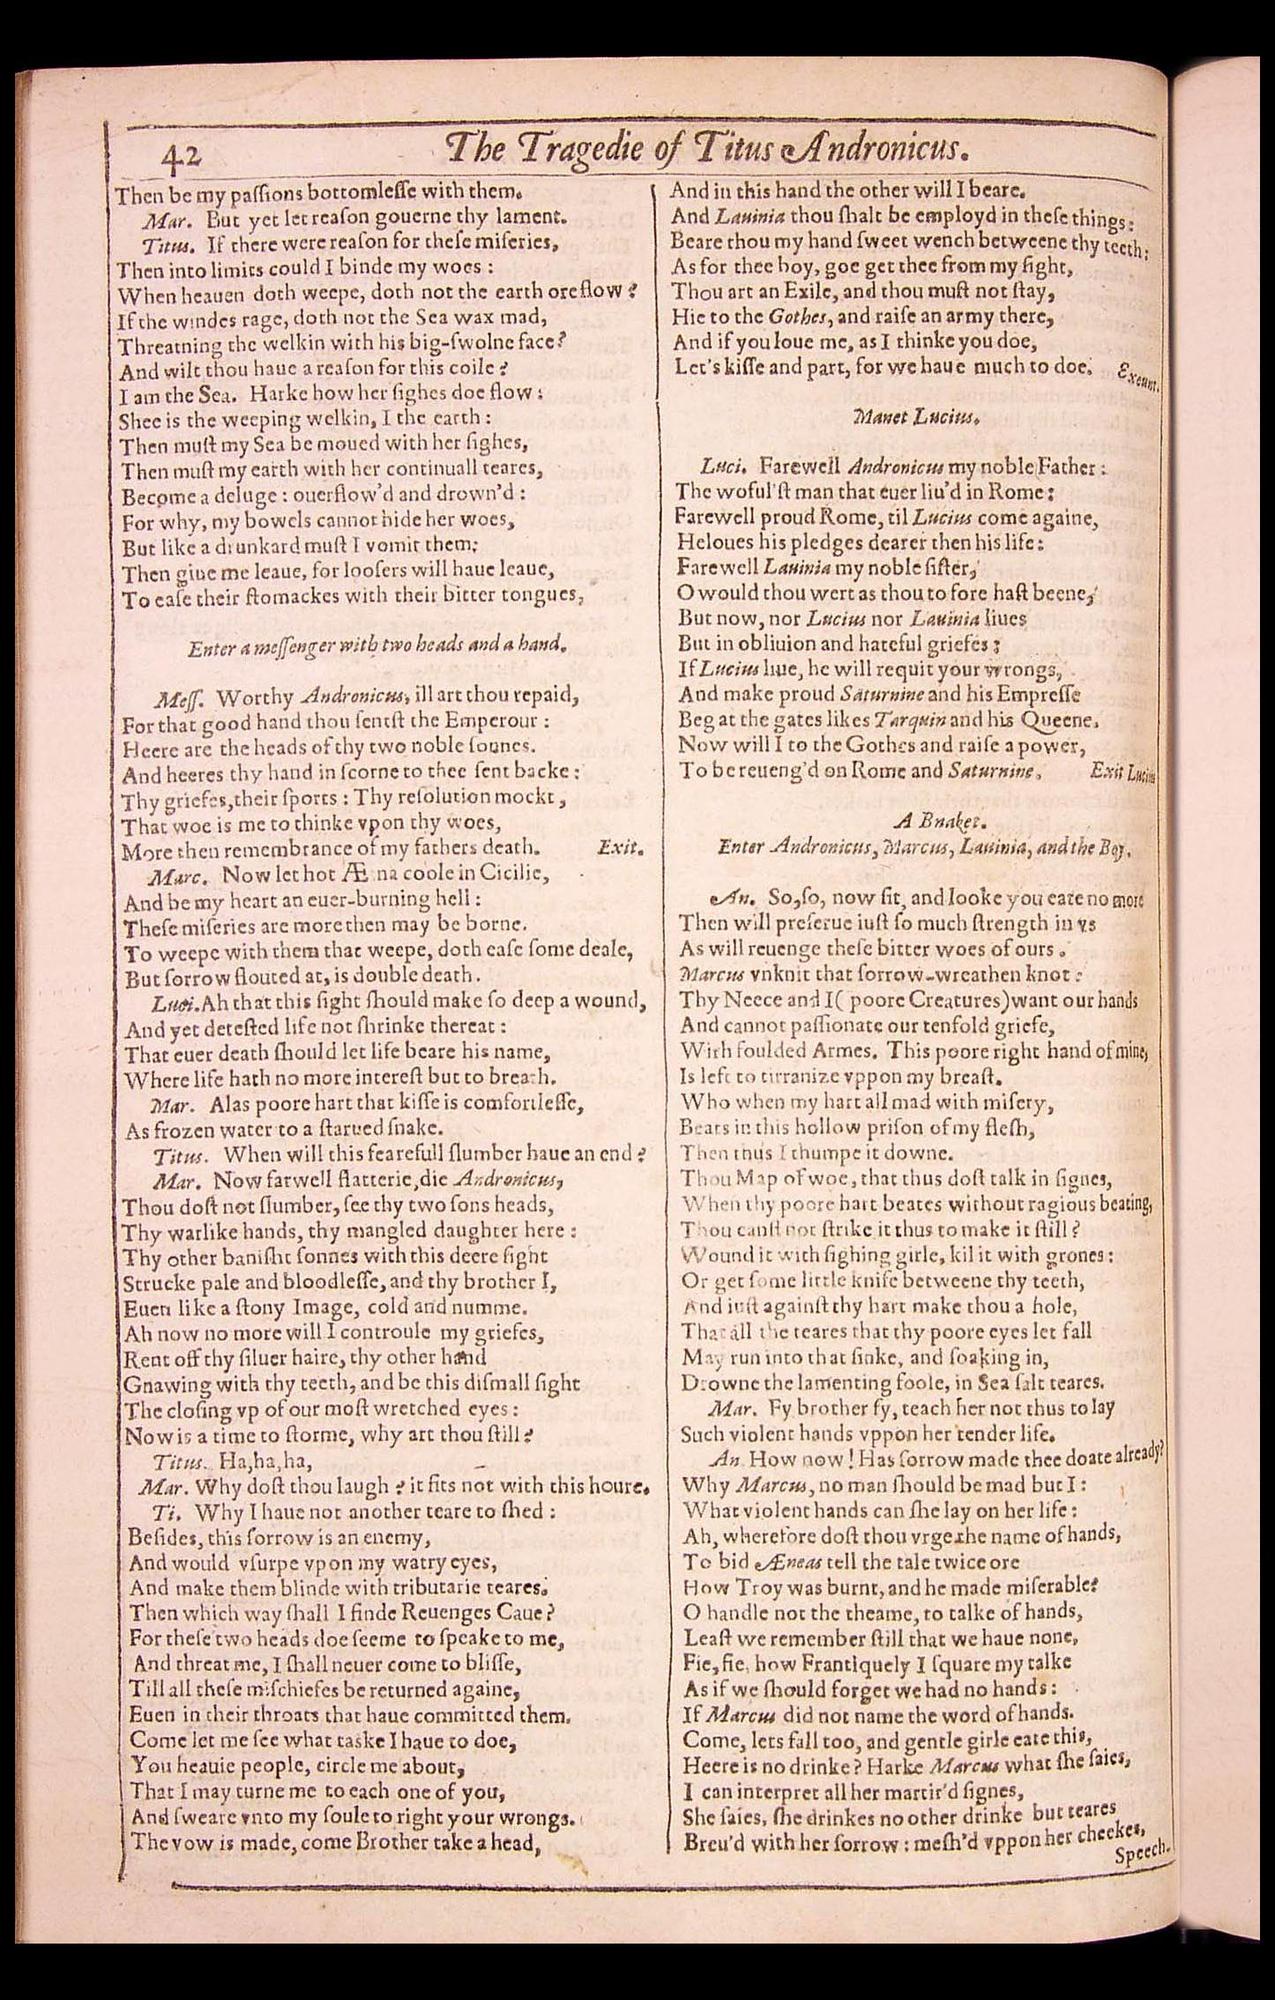 42
The Tragedie of Titus Andronicus.
Then be my paſſions bottomleſſe with them.
Mar. But yet let reaſon gouerne thy lament.
Titus. If there were reaſon for theſe miſeries,
Then into limits could I binde my woes:
When heauen doth weepe, doth not the earth oreflow?
If the windes rage, doth not the Sea wax mad,
Threatning the welkin with his big-ſwolne face?
And wilt thou haue a reaſon for this coile?
I am the Sea. Harke how her ſighes doe flow:
Shee is the weeping welkin, I the earth:
Then muſt my Sea be moued with her ſighes,
Then muſt my earth with her continuall teares,
Become a deluge: ouerflow'd and drown'd:
For why, my bowels cannot hide her woes,
But like a drunkard muſt I vomit them:
Then giue me leaue, for looſers will haue leaue,
To eaſe their ſtomackes with their bitter tongues,
Enter a meſſenger with two heads and a hand.
Meſſ. Worthy Andronicus, ill art thou repaid,
For that good hand thou ſentſt the Emperour:
Heere are the heads of thy two noble ſonnes.
And heeres thy hand in ſcorne to thee ſent backe:
Thy griefes, their ſports: Thy reſolution mockt,
That woe is me to thinke vpon thy woes,
More then remembrance of my fathers death. Exit.
Marc. Now let hot Ætna coole in Cicilie,
And be my heart an euer-burning hell:
Theſe miſeries are more then may be borne.
To weepe with them that weepe, doth eaſe ſome deale,
But ſorrow flouted at, is double death.
Luci. Ah that this ſight ſhould make ſo deep a wound,
And yet deteſted life not ſhrinke thereat:
That euer death ſhould let life beare his name,
Where life hath no more intereſt but to breath.
Mar. Alas poore hart that kiſſe is comfortleſſe,
As frozen water to a ſtarued ſnake.
Titus. When will this fearefull ſlumber haue an end?
Mar. Now farwell flatterie, die Andronicus,
Thou doſt not ſlumber, ſee thy two ſons heads,
Thy warlike hands, thy mangled daughter here:
Thy other baniſht ſonnes with this deere ſight
Strucke pale and bloodleſſe, and thy brother I,
Euen like a ſtony Image, cold and numme.
Ah now no more will I controule my griefes,
Rent off thy ſiluer haire, thy other hand
Gnawing with thy teeth, and be this diſmall ſight
The cloſing vp of our moſt wretched eyes:
Now is a time to ſtorme, why art thou ſtill?
Titus. Ha, ha, ha,
Mar. Why doſt thou laugh? it fits not with this houre.
Ti. Why I haue not another teare to ſhed:
Beſides, this ſorrow is an enemy,
And would vſurpe vpon my watry eyes,
And make them blinde with tributarie teares.
Then which way ſhall I finde Reuenges Caue?
For theſe two heads doe ſeeme to ſpeake to me,
And threat me, I ſhall neuer come to bliſſe,
Till all theſe miſchiefes be returned againe,
Euen in their throats that haue committed them.
Come let me ſee what taske I haue to doe,
You heauie people, circle me about,
That I may turne me to each one of you,
And ſweare vnto my ſoule to right your wrongs.
The vow is made, come Brother take a head,
And in this hand the other will I beare.
And Lauinia thou ſhalt be employd in theſe things:
Beare thou my hand ſweet wench betweene thy teeth:
As for thee boy, goe get thee from my ſight,
Thou art an Exile, and thou muſt not ſtay,
Hie to the Gothes, and raiſe an army there,
And if you loue me, as I thinke you doe,
Let's kiſſe and part, for we haue much to doe. Exeunt.
Manet Lucius.
Luci. Farewell Andronicus my noble Father:
The woful'ſt man that euer liu'd in Rome:
Farewell proud Rome, til Lucius come againe,
He loues his pledges dearer then his life:
Farewell Lauinia my noble ſiſter,
O would thou wert as thou to fore haſt beene,
But now, nor Lucius nor Lauinia liues
But in obliuion and hateful griefes:
If Lucius liue, he will requit your wrongs,
And make proud Saturnine and his Empreſſe
Beg at the gates likes Tarquin and his Queene.
Now will I to the Gothes and raiſe a power,
To be reueng'd on Rome and Saturnine. Exit Lucius
A Bnaket.
Enter Andronicus, Marcus, Lauinia, and the Boy.
An. So, ſo, now ſit, and looke you eate no more
Then will preſerue iuſt ſo much ſtrength in vs
As will reuenge theſe bitter woes of ours.
Marcus vnknit that ſorrow-wreathen knot:
Thy Neece and I (poore Creatures) want our hands
And cannot paſſionate our tenfold griefe,
With foulded Armes. This poore right hand of mine,
Is left to tirranize vppon my breaſt.
Who when my hart all mad with miſery,
Beats in this hollow priſon of my fleſh,
Then thus I thumpe it downe.
Thou Map of woe, that thus doſt talk in ſignes,
When thy poore hart beates without ragious beating,
Thou canſt not ſtrike it thus to make it ſtill?
Wound it with ſighing girle, kil it with grones:
Or get ſome little knife betweene thy teeth,
And iuſt againſt thy hart make thou a hole,
That all the teares that thy poore eyes let fall
May run into that ſinke, and ſoaking in,
Drowne the lamenting foole, in Sea ſalt teares.
Mar. Fy brother fy, teach her not thus to lay
Such violent hands vppon her tender life.
An. How now! Has ſorrow made thee doate already?
Why Marcus, no man ſhould be mad but I:
What violent hands can ſhe lay on her life:
Ah, wherefore doſt thou vrge the name of hands,
To bid Æneas tell the tale twice ore
How Troy was burnt, and he made miſerable?
O handle not the theame, to talke of hands,
Leaſt we remember ſtill that we haue none,
Fie, fie, how Frantiquely I ſquare my talke
As if we ſhould forget we had no hands:
If Marcus did not name the word of hands.
Come, lets fall too, and gentle girle eate this,
Heere is no drinke? Harke Marcus what ſhe ſaies,
I can interpret all her martir'd ſignes,
She ſaies, ſhe drinkes no other drinke but teares
Breu'd with her ſorrow: meſh'd vppon her cheekes,
Speech.